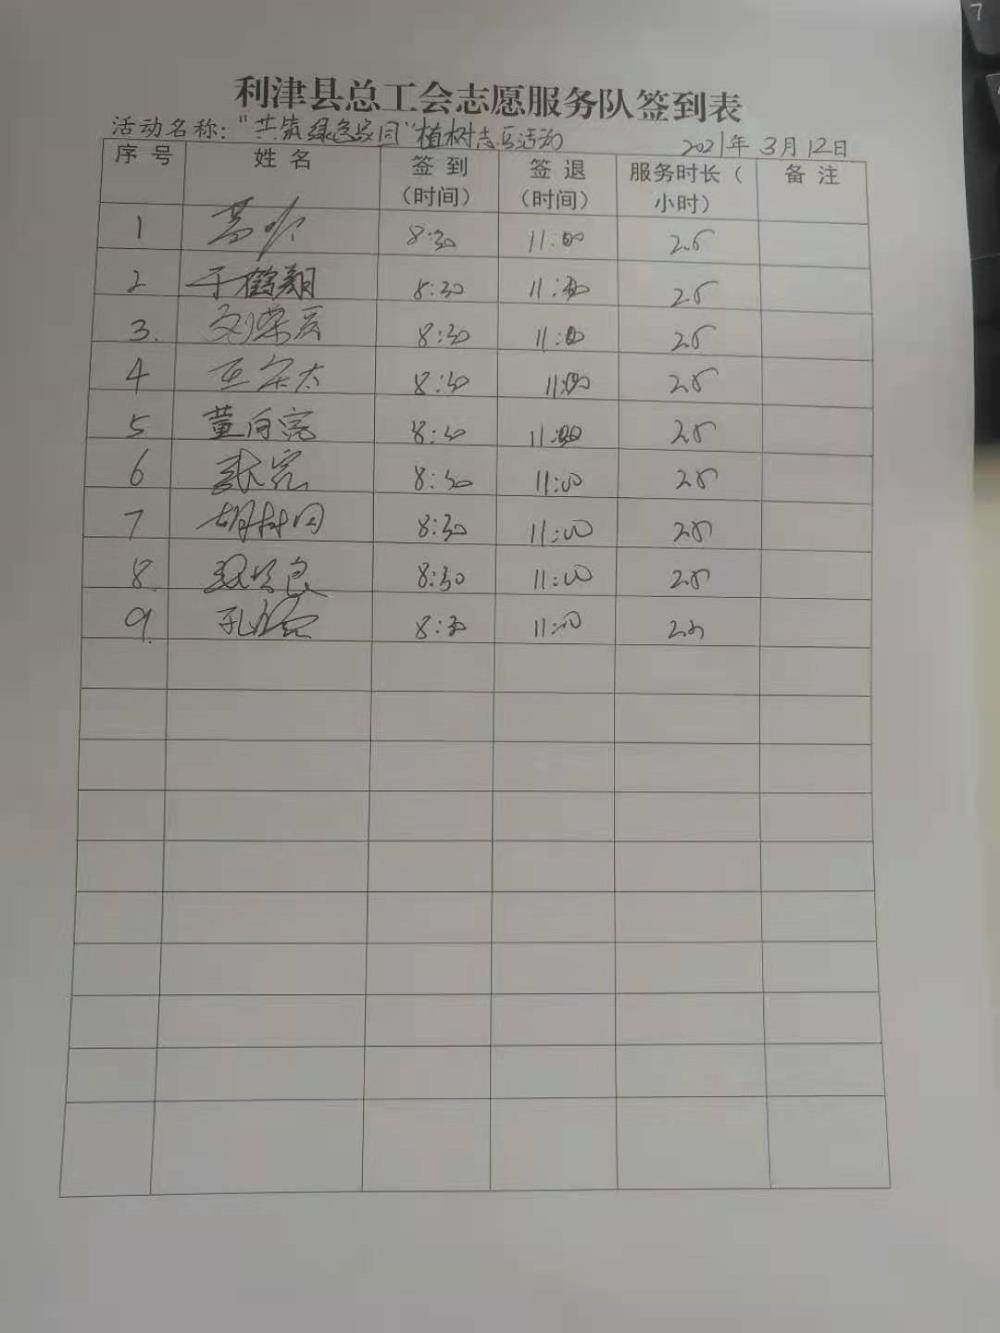 利津县总工会志愿服务队签到表
活动名称："共筑绿色家园"植树志愿活动 2021年3月12日
序号 姓名 签到（时间） 签退（时间） 服务时长（小时） 备注
1 8:30 11:00 2.5
2 于鹤翔 8:30 11:00 2.5
3. 刘荣 8:30 11:00 2.5
4 8:30 11:00 2.5
5 董向亮 8:30 11:00 2.5
6 8:30 11:00 2.5
7 胡 8:30 11:00 2.5
8. 良 8:30 11:00 2.5
9. 孔 8:30 11:00 2.5